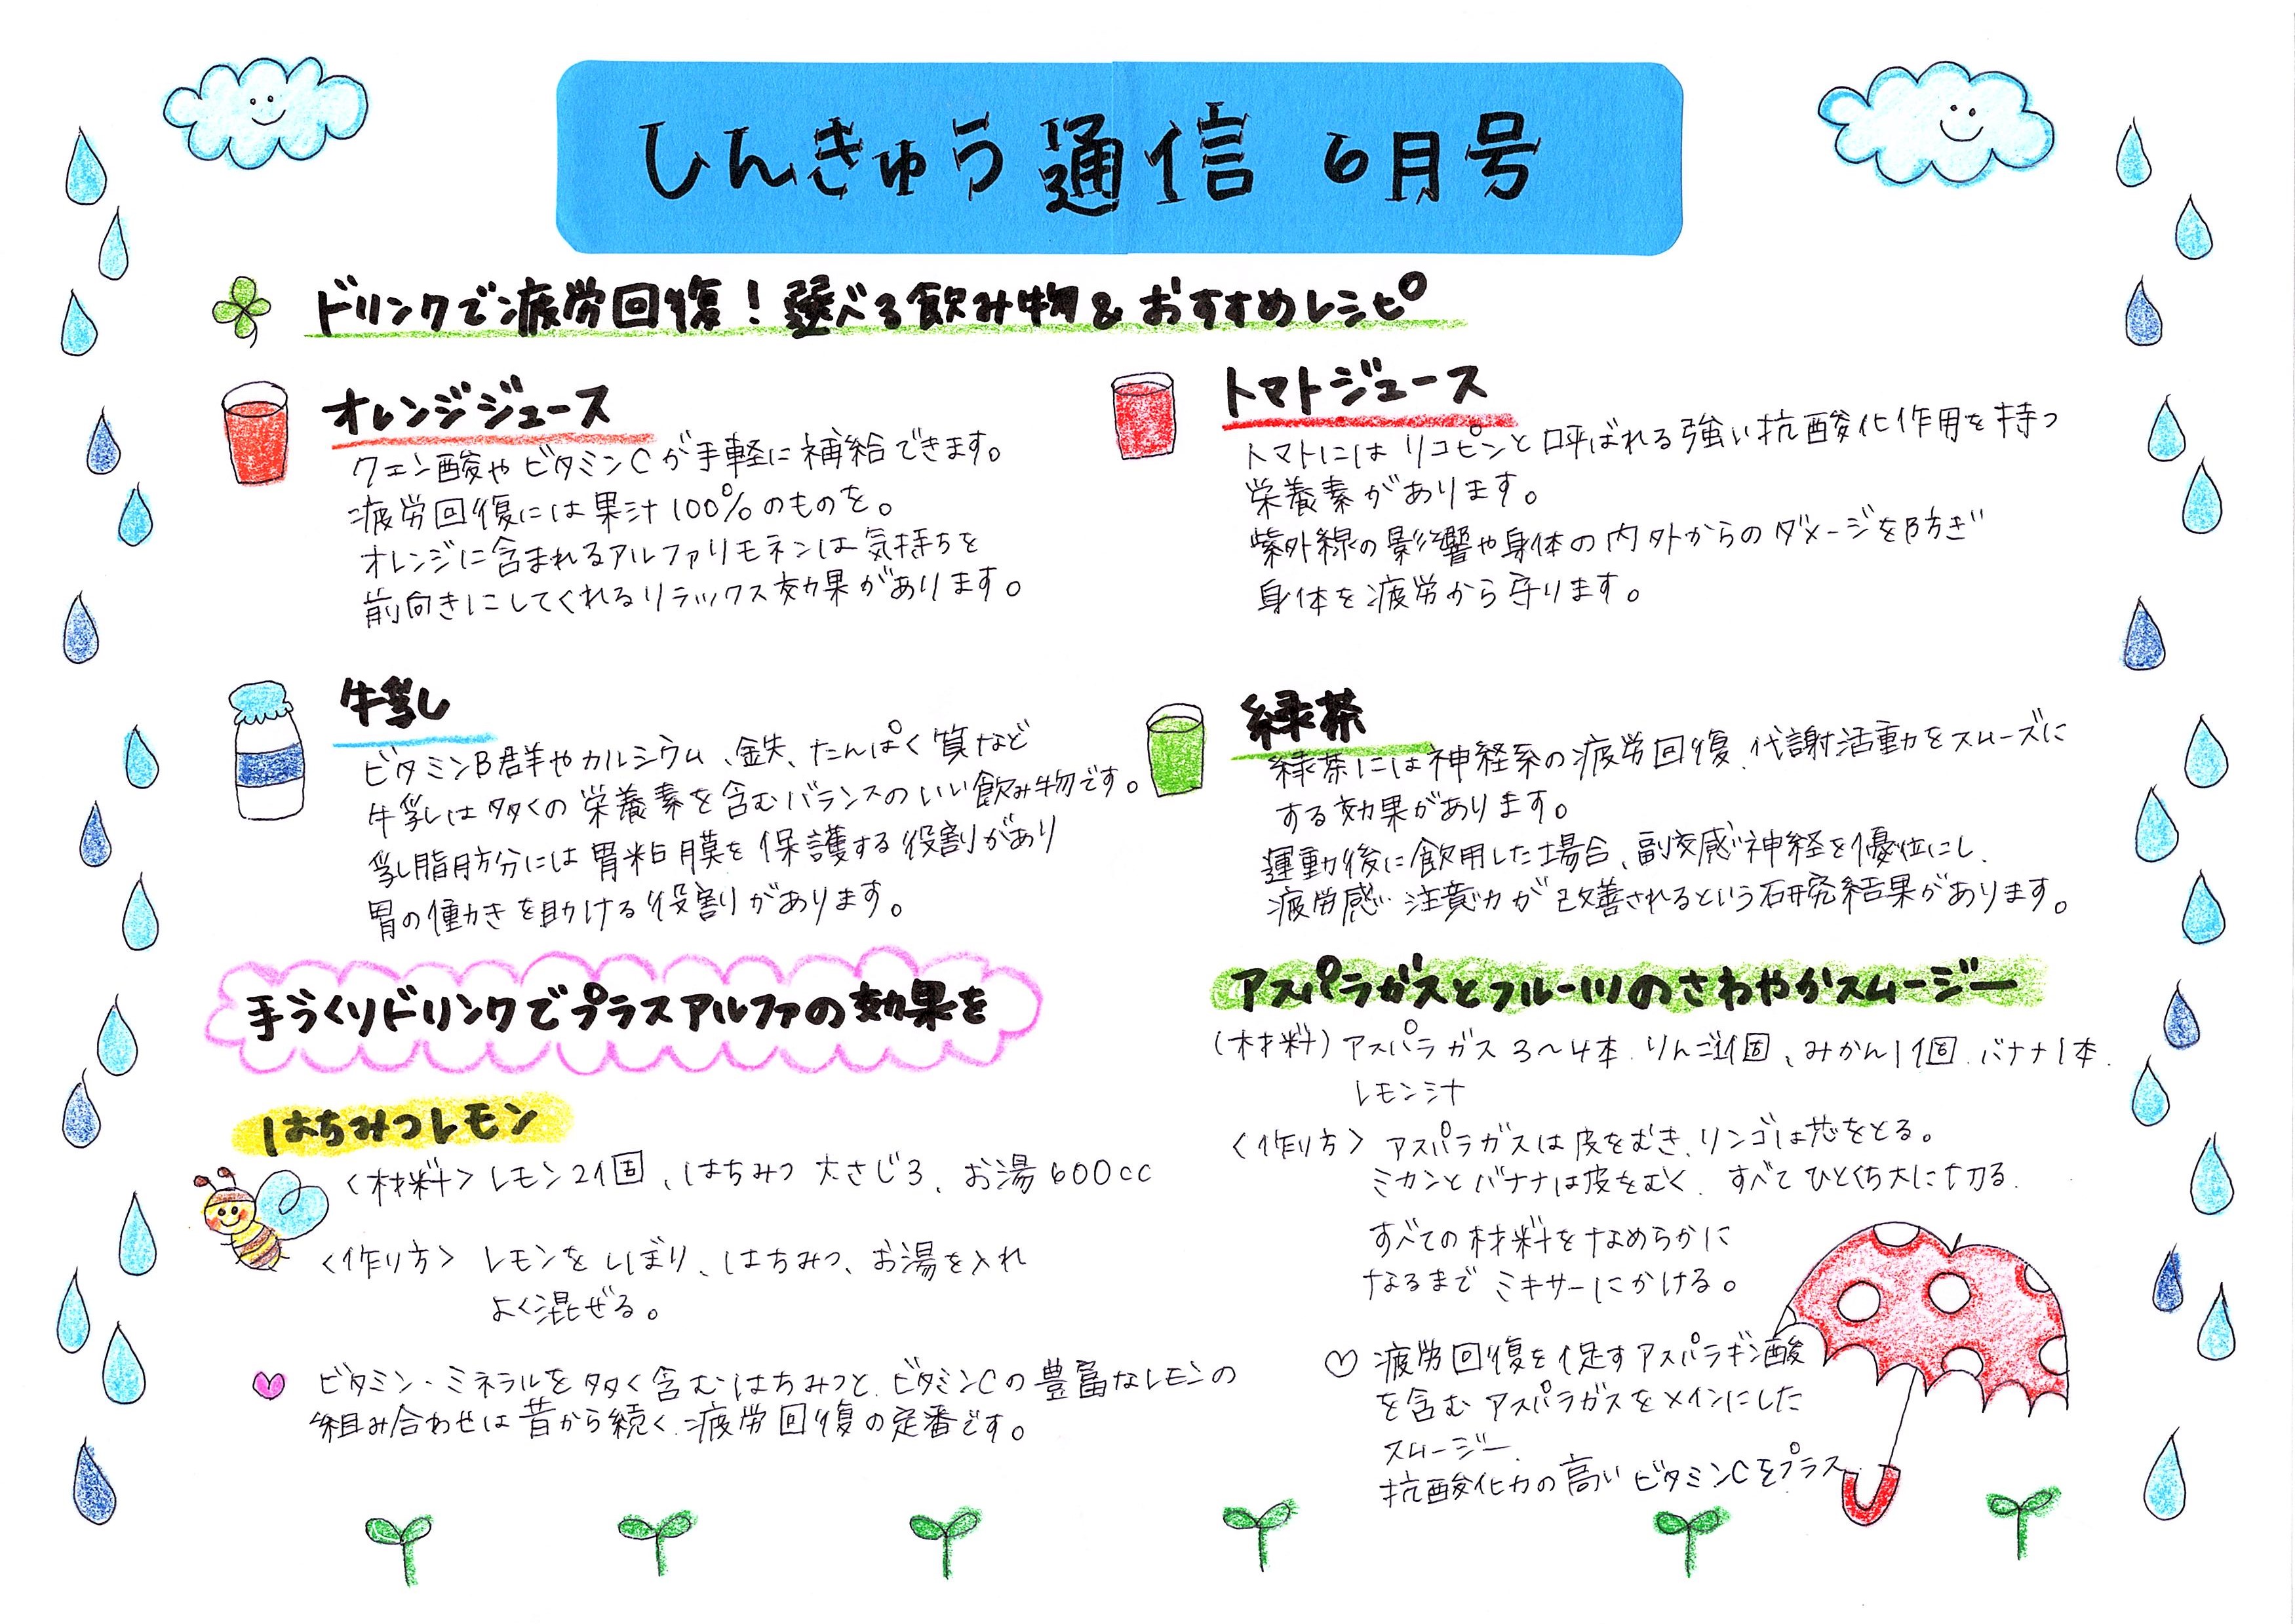 しんきゅう通信 6月号
ドリンクで疲労回復！選べる飲み物&おすすめレシピ
オレンジジュース
クエン酸やビタミンCが手軽に補給できます。
疲労回復には果汁100%のものを。
オレンジに含まれるアルファリモネンは気持ちを
前向きにしてくれるリラックス効果があります。
トマトジュース
トマトにはリコピンと呼ばれる強い抗酸化作用を持つ
栄養素があります。
紫外線の影響や身体の内外からのダメージを防ぎ
身体を疲労から守ります。
牛乳
ビタミンB群やカルシウム、鉄、たんぱく質など
牛乳は多くの栄養素を含むバランスのいい飲み物です。
乳脂肪分には胃粘膜を保護する役割があり
胃の働きを助ける役割があります。
緑茶
緑茶には神経系の疲労回復、代謝活動をスムーズに
する効果があります。
運動後に飲用した場合、副交感神経を優位にし、
疲労感・注意力が改善されるという研究結果があります。
手づくりドリンクでプラスアルファの効果を
はちみつレモン
〈材料〉レモン2個、はちみつ 大さじ3、お湯600cc
〈作り方〉レモンをしぼり、はちみつ、お湯を入れ
よく混ぜる。
ビタミン・ミネラルを多く含むはちみつと、ビタミンCの豊富なレモンの
組み合わせは昔から続く、疲労回復の定番です。
アスパラガスとフルーツのさわやかスムージー
(材料)アスパラガス3〜4本、りんご1個、みかん1個、バナナ1本、
レモン汁
〈作り方〉アスパラガスは皮をむき、リンゴは芯をとる。
ミカンとバナナは皮をむく、すべてひとくち大に切る。
すべての材料をなめらかに
なるまでミキサーにかける。
♡疲労回復を促すアスパラギン酸
を含むアスパラガスをメインにした
スムージー、
抗酸化力の高いビタミンCをプラス、